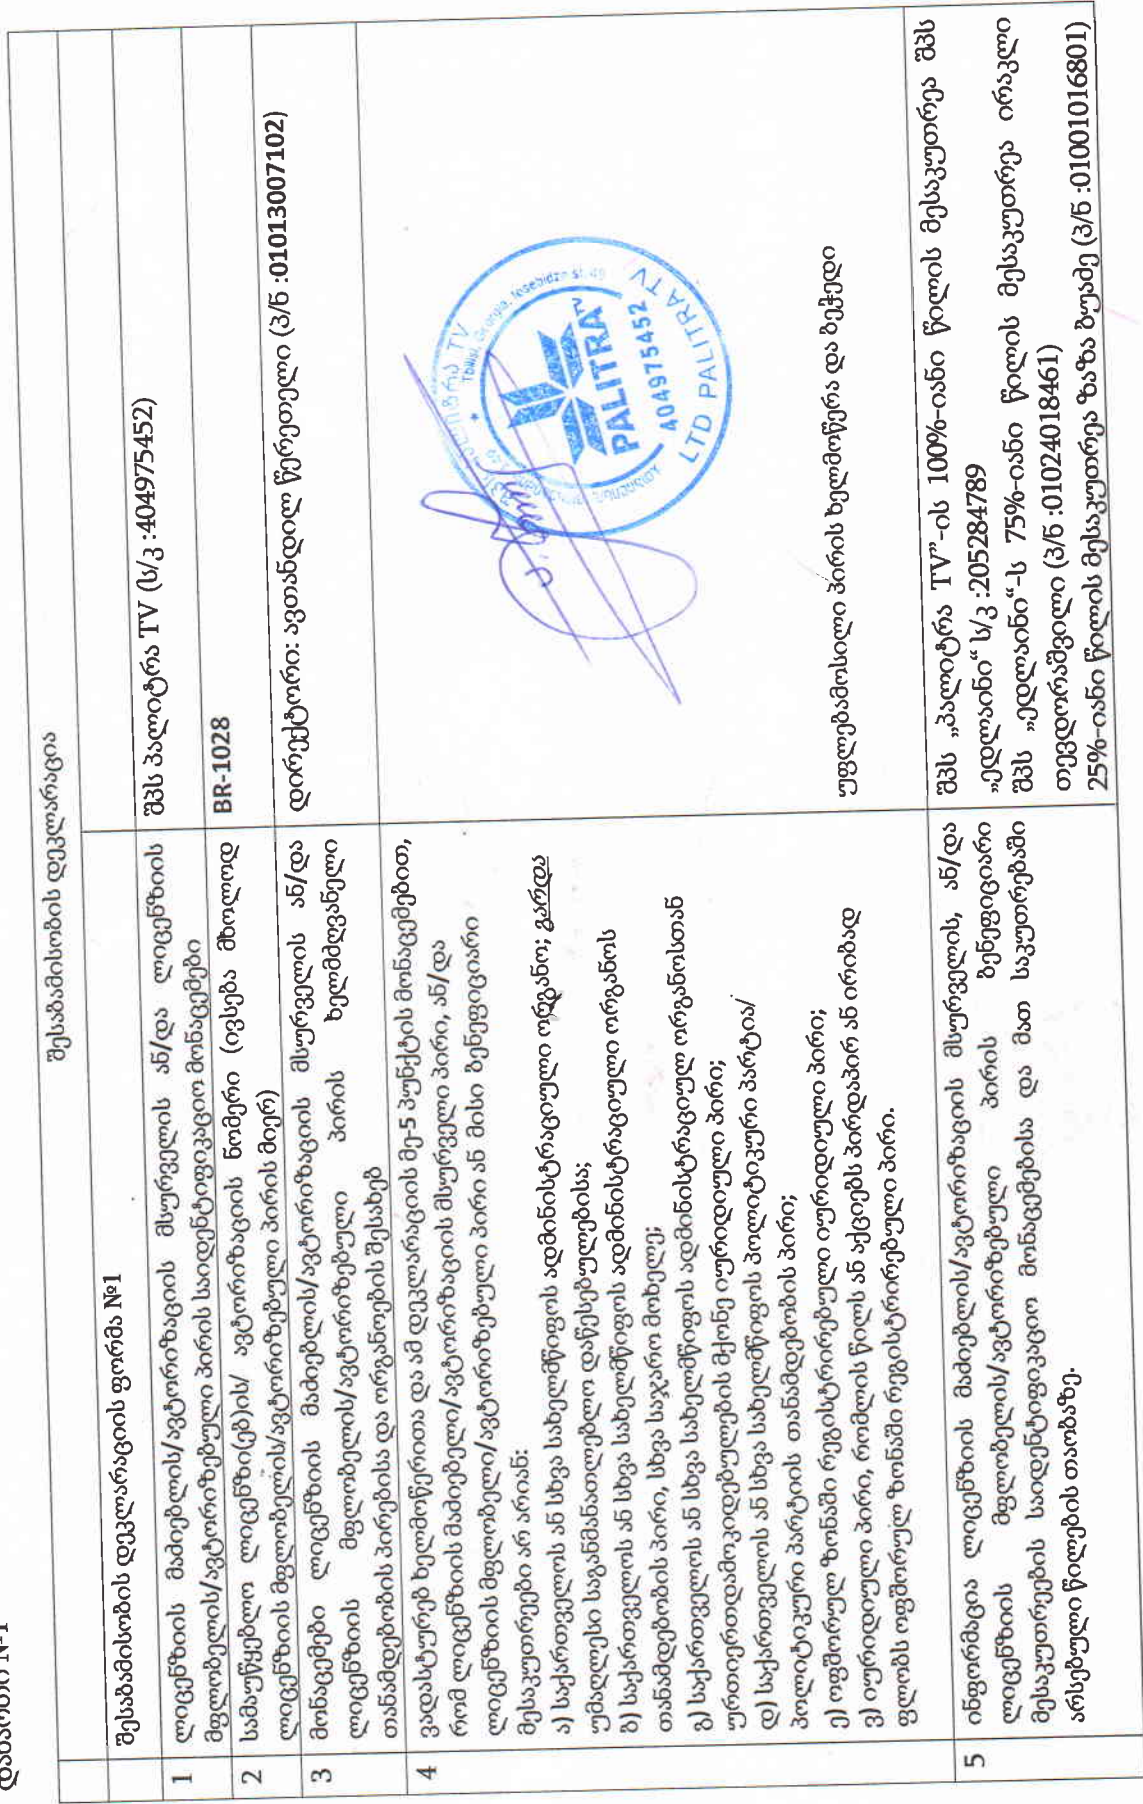 დანართი №1
შესაბამისობის დეკლარაცია
შესაბამისობის დეკლარაციის ფორმა №1
1
ლიცენზიის მაძიებლის/ავტორიზაციის მსურველის ან/და ლიცენზიის
მფლობელის/ავტორიზებული პირის საიდენტიფიკაციო მონაცემები
შპს პალიტრა TV (ს/კ :404975452)
2
სამაუწყებლო ლიცენზი(ებ)ის/ ავტორიზაციის ნომერი (ივსება მხოლოდ
ლიცენზიის მფლობელის/ავტორიზებული პირის მიერ)
BR-1028
3
მონაცემები ლიცენზიის მაძიებლის/ავტორიზაციის მსურველის ან/და
ლიცენზიის მფლობელის/ავტორიზებული პირის ხელმძღვანელი
თანამდებობის პირებისა და ორგანოების შესახებ
დირექტორი: ავთანდილ წერეთელი (პ/ნ :01013007102)
4
ვადასტურებ ხელმოწერითა და ამ დეკლარაციის მე-5 პუნქტის მონაცემებით,
რომ ლიცენზიის მაძიებელი/ავტორიზაციის მსურველი პირი, ან/და
ლიცენზიის მფლობელი/ავტორიზებული პირი ან მისი ბენეფიციარი
მესაკუთრეები არ არიან:
ა) საქართველოს ან სხვა სახელმწიფოს ადმინისტრაციული ორგანო; გარდა
უმაღლესი საგანმანათლებლო დაწესებულებისა;
ბ) საქართველოს ან სხვა სახელმწიფოს ადმინისტრაციული ორგანოს
თანამდებობის პირი, სხვა საჯარო მოხელე;
გ) საქართველოს ან სხვა სახელმწიფოს ადმინისტრაციულ ორგანოსთან
ურთიერთდამოკიდებულების მქონე იურიდიული პირი;
დ) საქართველოს ან სხვა სახელმწიფოს პოლიტიკური პარტია/
პოლიტიკური პარტიის თანამდებობის პირი;
ე) ოფშორულ ზონაში რეგისტრირებული იურიდიული პირი;
ვ) იურიდიული პირი, რომლის წილს ან აქციებს პირდაპირ ან ირიბად
ფლობს ოფშორულ ზონაში რეგისტრირებული პირი.
შპს პალიტრა TV
Tbilisi, Georgia, Iosebidze st. 49
PALITRA TV
404975452
LTD PALITRA TV
უფლებამოსილი პირის ხელმოწერა და ბეჭედი
5
ინფორმაცია ლიცენზიის მაძიებლის/ავტორიზაციის მსურველის, ან/და
ლიცენზიის მფლობელის/ავტორიზებული პირის ბენეფიციარი
მესაკუთრეების საიდენტიფიკაციო მონაცემებისა და მათ საკუთრებაში
არსებული წილების თაობაზე.
შპს „პალიტრა TV”-ის 100%-იანი წილის მესაკუთრეა შპს
„ედლაინი“ ს/კ :205284789
შპს „ედლაინი“-ს 75%-იანი წილის მესაკუთრეა ირაკლი
თევდორაშვილი (პ/ნ :01024018461)
25%-იანი წილის მესაკუთრეა ზაზა ბუაძე (პ/ნ :01001016801)